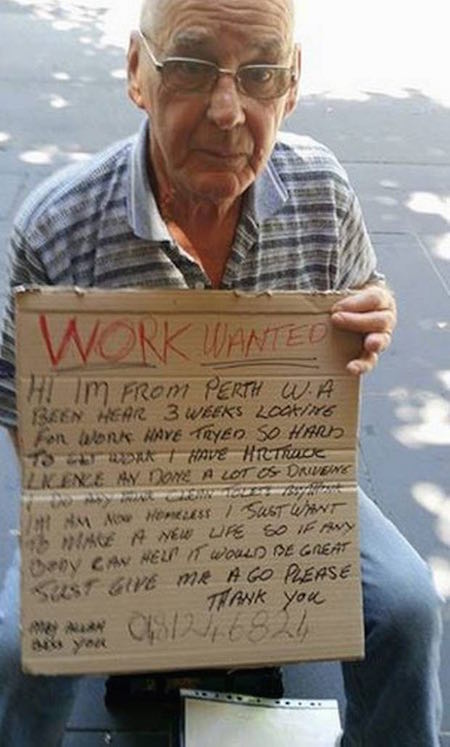 WORK WANTED
HI IM FROM PERTH W.A
BEEN HEAR 3 WEEKS LOOKING
FOR WORK HAVE TRYED SO HARD
TO GET WORK I HAVE HR TRUCK
LICENCE AN DONE A LOT OS DRIVEING
I DO ANY THINK CLEAN TOLETS ANYTHINK
IM AM NOW HOMELESS I JUST WANT
TO MAKE A NEW LIFE SO IF ANY
BODY CAN HELP IT WOULD BE GREAT
JUST GIVE ME A GO PLEASE
THANK YOU
MAY ALLAH 0481246824
BLESS YOU